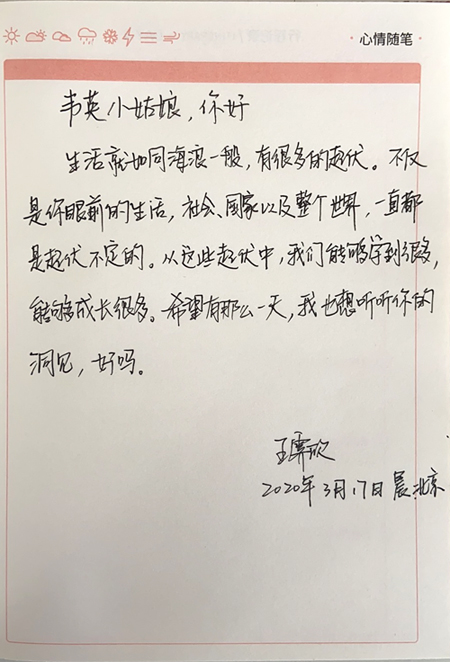 ·心情随笔·
韦英小姑娘，你好
生活就如同海浪一般，有很多的起伏。不仅
是你眼前的生活，社会、国家以及整个世界，一直都
是起伏不定的。从这些起伏中，我们能够学到很多，
能够成长很多。希望有那么一天，我也想听听你的
洞见，好吗。
王霁欣
2020年3月17日晨.北京